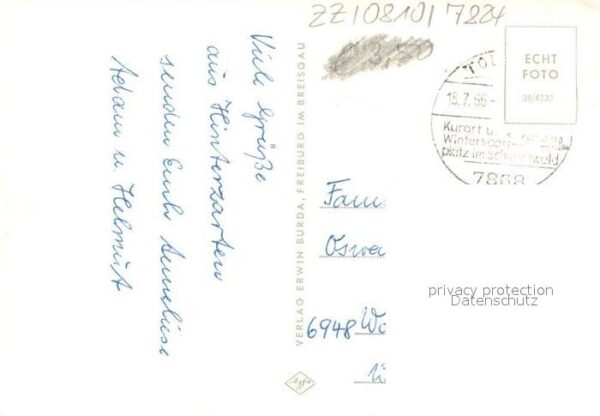 ZZ1081017824
Viele Grüße
aus Hinterzarten
senden Euch Anneliese
Adam u. Helmut
VERLAG ERWIN BURDA, FREIBURG IM BREISGAU
Agfa
Fam
Oswa
6948 Wa
ECHT
FOTO
TO
18.7.66-
Kurort u.
Wintersport-
platz im Schwarzwald
7868
privacy protection
Datenschutz